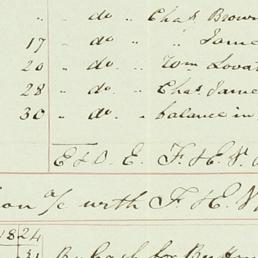 " do " Chas Brown
17 " do " " Jame
20 " do .. Tom Lovat
28 " do " Chas Jame
30 " do " balance in
E & O. E. F. & E.
on a/c with F & E
1824
By Cash for